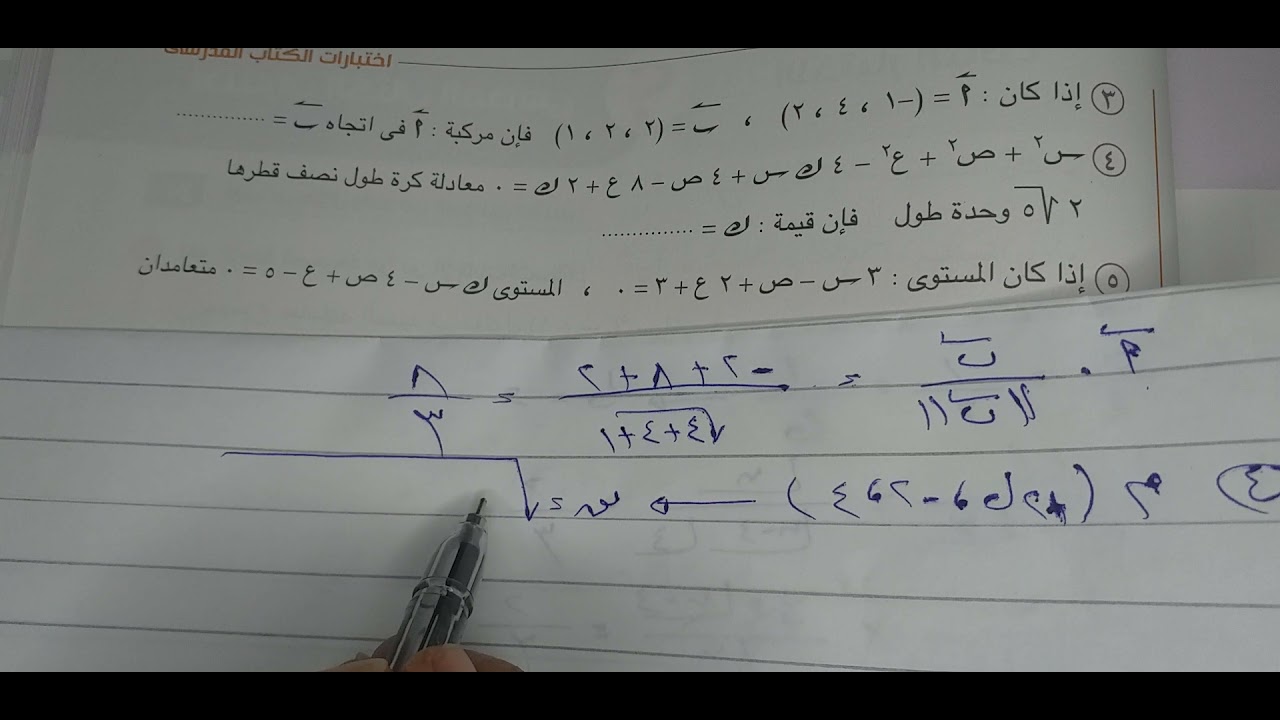 اختبارات الكتاب المدرسى
٣ إذا كان : أ = (-١ ، ٤ ، ٢) ، ب = (٢ ، ٢ ، ١) فإن مركبة : أ فى اتجاه ب = ..............
٤ س٢ + ص٢ + ع٢ - ٤ ك س + ٤ ص - ٨ ع + ٢ ك = ٠ معادلة كرة طول نصف قطرها
٢ √٥ وحدة طول فإن قيمة : ك = ...............
٥ إذا كان المستوى : ٣ س - ص + ٢ ع + ٣ = ٠ ، المستوى ك س - ٤ ص + ع - ٥ = ٠ متعامدان
أ · ب / ||ب|| = (-٢ + ٨ + ٢) / √(٤ + ٤ + ١) = ٨ / ٣
٤ م (٢ك ، -٢ ، ٤) ← نق = √